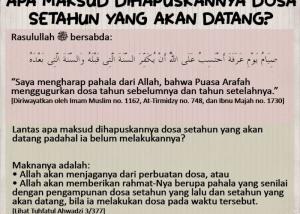 APA MAKSUD DIHAPUSKANNYA DOSA
SETAHUN YANG AKAN DATANG?
Rasulullah ﷺ bersabda:
صِيَامُ يَوْمِ عَرَفَةَ أَحْتَسِبُ عَلَى اللَّهِ أَنْ يُكَفِّرَ السَّنَةَ الَّتِي قَبْلَهُ وَالسَّنَةَ الَّتِي بَعْدَهُ
"Saya mengharap pahala dari Allah, bahwa Puasa Arafah
menggugurkan dosa tahun sebelumnya dan tahun setelahnya."
[Diriwayatkan oleh Imam Muslim no. 1162, At-Tirmidzy no. 748, dan Ibnu Majah no. 1730]
Lantas apa maksud dihapuskannya dosa setahun yang akan
datang padahal ia belum melakukannya?
Maknanya adalah:
• Allah akan menjaganya dari perbuatan dosa, atau
• Allah akan memberikan rahmat-Nya berupa pahala yang senilai
dengan pengampunan dosa setahun yang lalu dan setahun yang
akan datang, bila ia melakukan dosa pada waktu tersebut.
[Lihat Tuhfatul Ahwadzi 3/377]